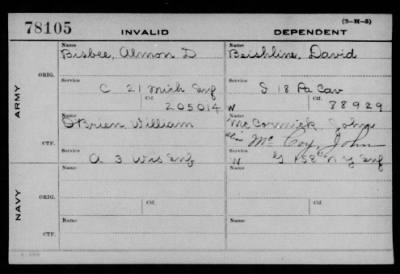 78105 INVALID DEPENDENT (3-M-5)
ARMY
ORIG.
Name Name
Bisbee, Almon D Beishline, David
Service Service
C 21 Mich Inf S 18 Pa Cav
Ctf. Ctf.
205014 W 78929
CTF.
Name Name
O'Brien William McCormick John
Service alias McCoy, John
A 3 Wis Inf W G 158 N Y Inf
NAVY
ORIG.
Name Name
Ctf. Ctf.
CTF.
Name Name